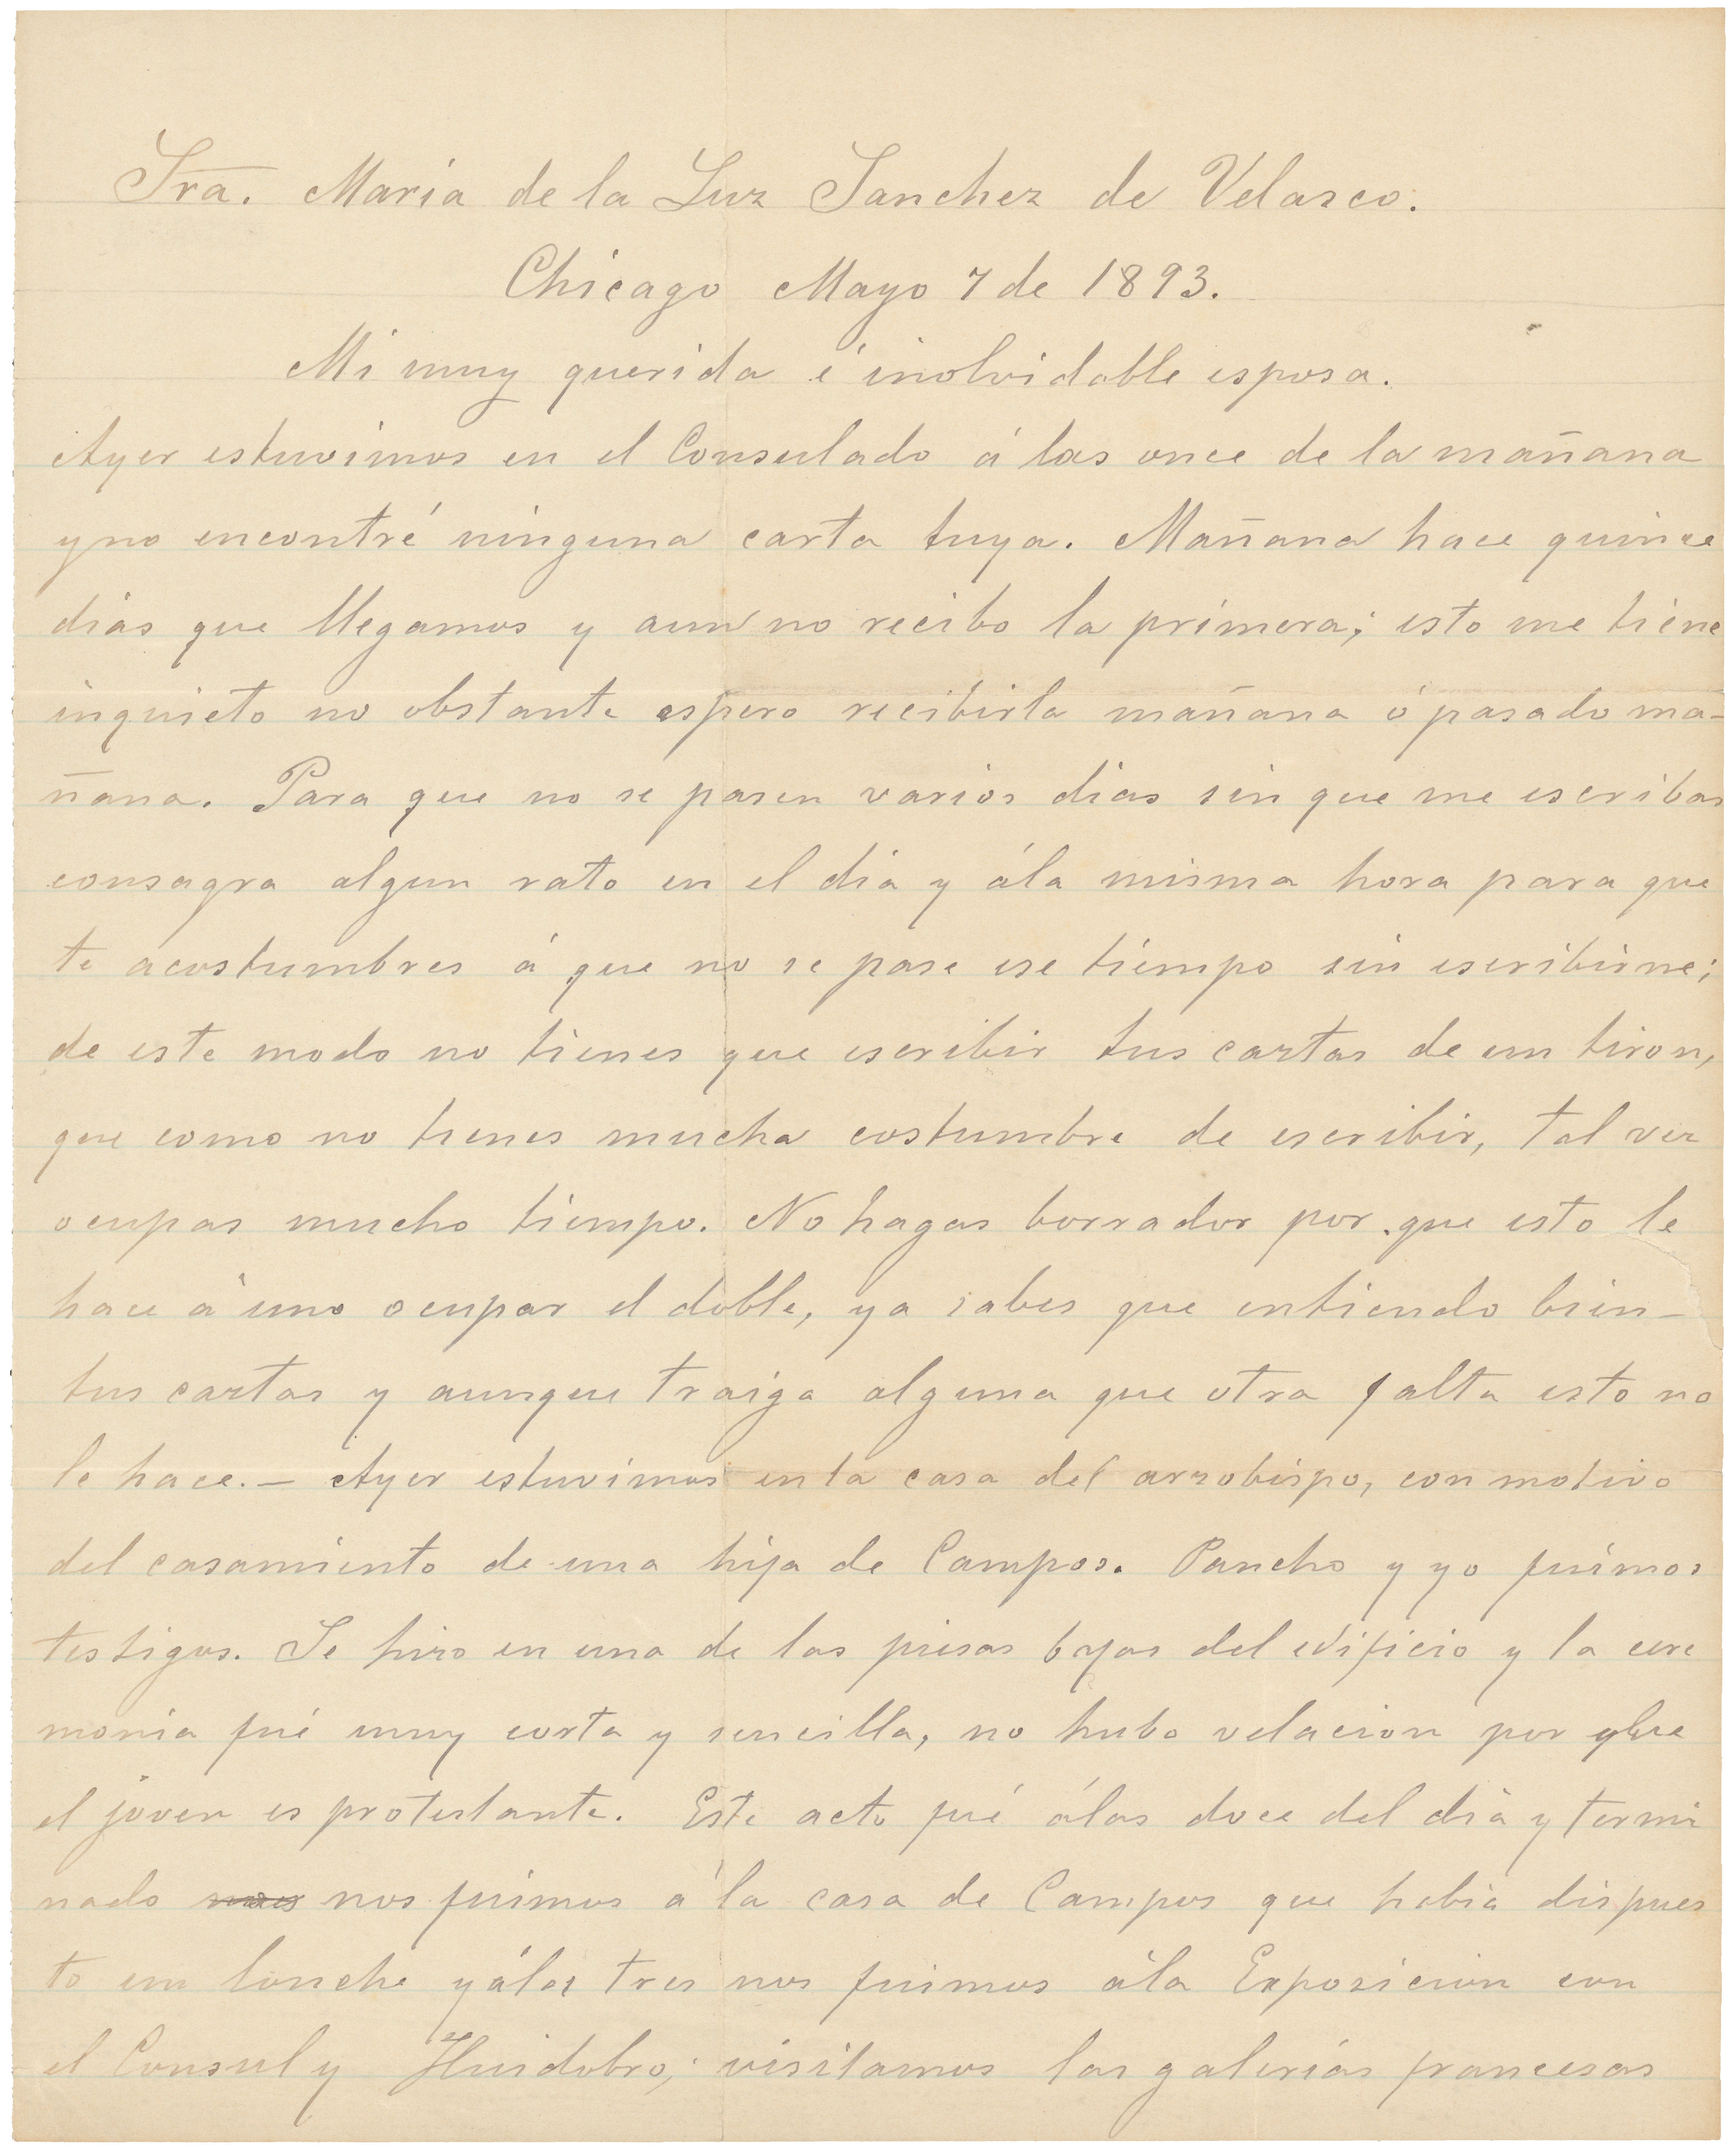 Sra. Maria de la Luz Sanchez de Velasco.
Chicago Mayo 7 de 1893.
Mi muy querida é inolvidable esposa.
Ayer estuvimos en el Consulado á las once de la mañana
y no encontré ninguna carta tuya. Mañana hace quince
dias que llegamos y aun no recibo la primera; esto me tiene
inquieto no obstante espero recibirla mañana ó pasado ma-
ñana. Para que no se pasen varios dias sin que me escribas
consagra algun rato en el dia y á la misma hora para que
te acostumbres á que no se pase ese tiempo sin escribirme;
de este modo no tienes que escribir tus cartas de un tiron,
que como no tienes mucha costumbre de escribir, tal vez
ocupas mucho tiempo. No hagas borrador por que esto le
hace á uno ocupar el doble, ya sabes que entiendo bien-
tus cartas y aunque traiga alguna que otra falta esto no
le hace. - Ayer estuvimos en la casa del arzobispo, con motivo
del casamiento de una hija de Campos. Pancho y yo fuimos
testigos. Se hizo en una de las piesas bajas del edificio y la cere
monia fué muy corta y sencilla, no hubo velacion por que
el joven es protestante. Este acto fué á las doce del dia y termi
nado nos fuimos a la casa de Campos que habia dispues
to un lonche y á las tres nos fuimos á la Exposicion con
el Consul y Huidobro; visitamos las galerias francesas